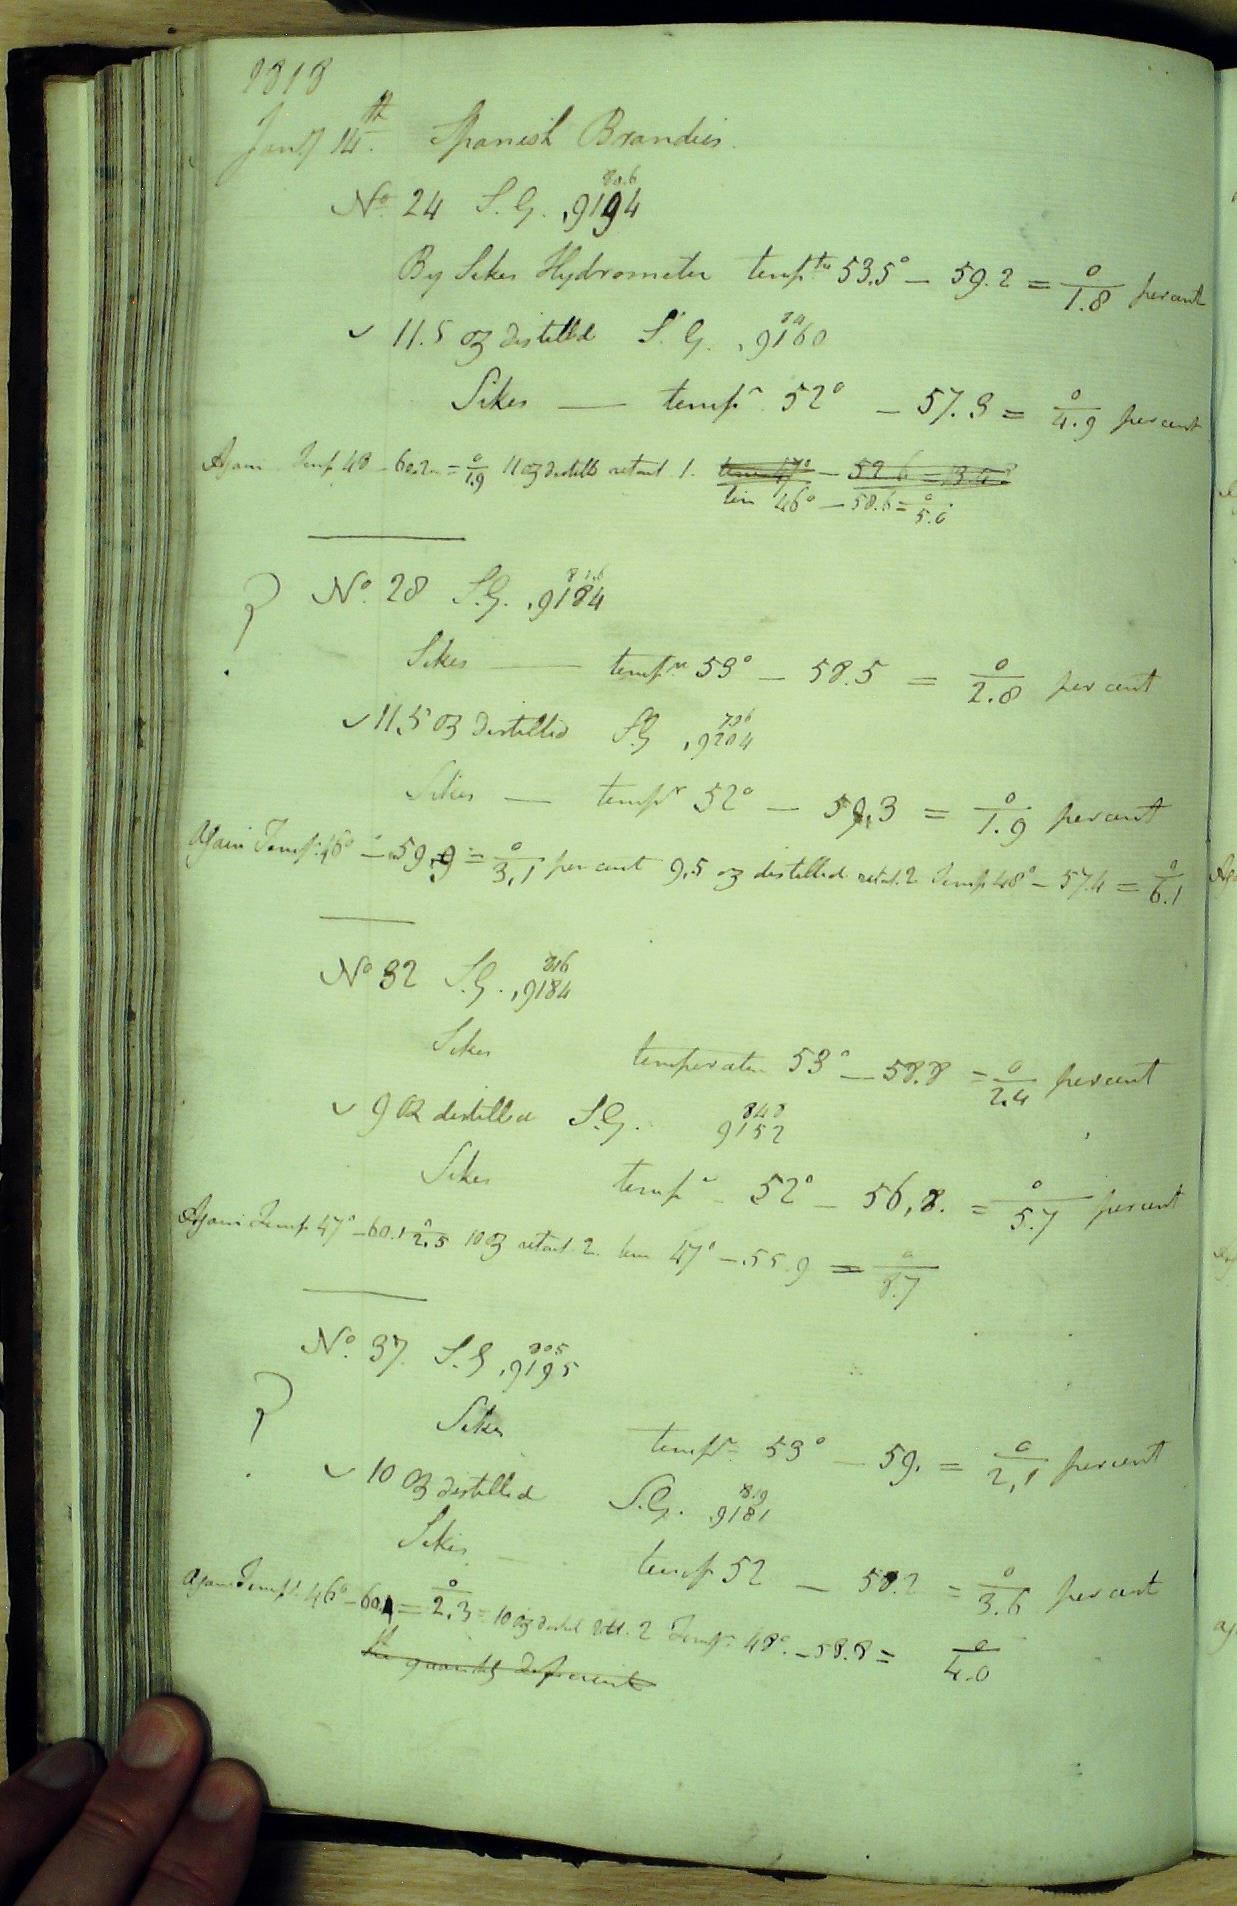 1818
Jany 14th. Spanish Brandies.
806
No. 24 S.G. ,9194
By Sikes Hydrometer tempre 53.5° — 59.2 = 0/1.8 per cent
11.5 oz distilled S.G. ,9160
Sikes — tempr. 52° — 57.3 = 0/4.9 per cent
Again Temp 48 — 60.2 = 0/1.9 11 oz distilld retort 1.
tem 46° — 58.6 = 0/5.0
816
? No. 28 S.G. ,9184
Sikes — tempre 53° — 58.5 = 0/2.8 per cent
796
11.5 oz distilled S.G ,9204
Sikes — tempr 52° — 59.3 = 0/1.9 per cent
Again Temp. 46° — 59.9 = 0/3.1 per cent 9.5 oz distilled retort. 2 Temp 48° — 57.4 = 0/6.1
816
No 32 S.G. ,9184
Sikes temperatu 53° — 58.8 = 0/2.4 per cent
848
9 oz distilled S.G. 9152
Sikes tempr — 52° — 56,8. = 0/5.7 per cent
Again Temp 47° — 60.1 0/2.5 10 oz retort 2. tem 47° — 55.9 = 0/8.7
805
No. 37. S.G ,9195
? Sikes tempr 53° — 59. = 0/2,1 per cent
819
10 oz distilled S.G. ,9181
Sikes — temp 52 — 58.2 = 0/3.6 per cent
Again Tempr. 46° — 60.1 = 0/2.3 = 10 oz distd rett. 2 Tempr 48°. — 58.8 = 0/4.0
the quantity different